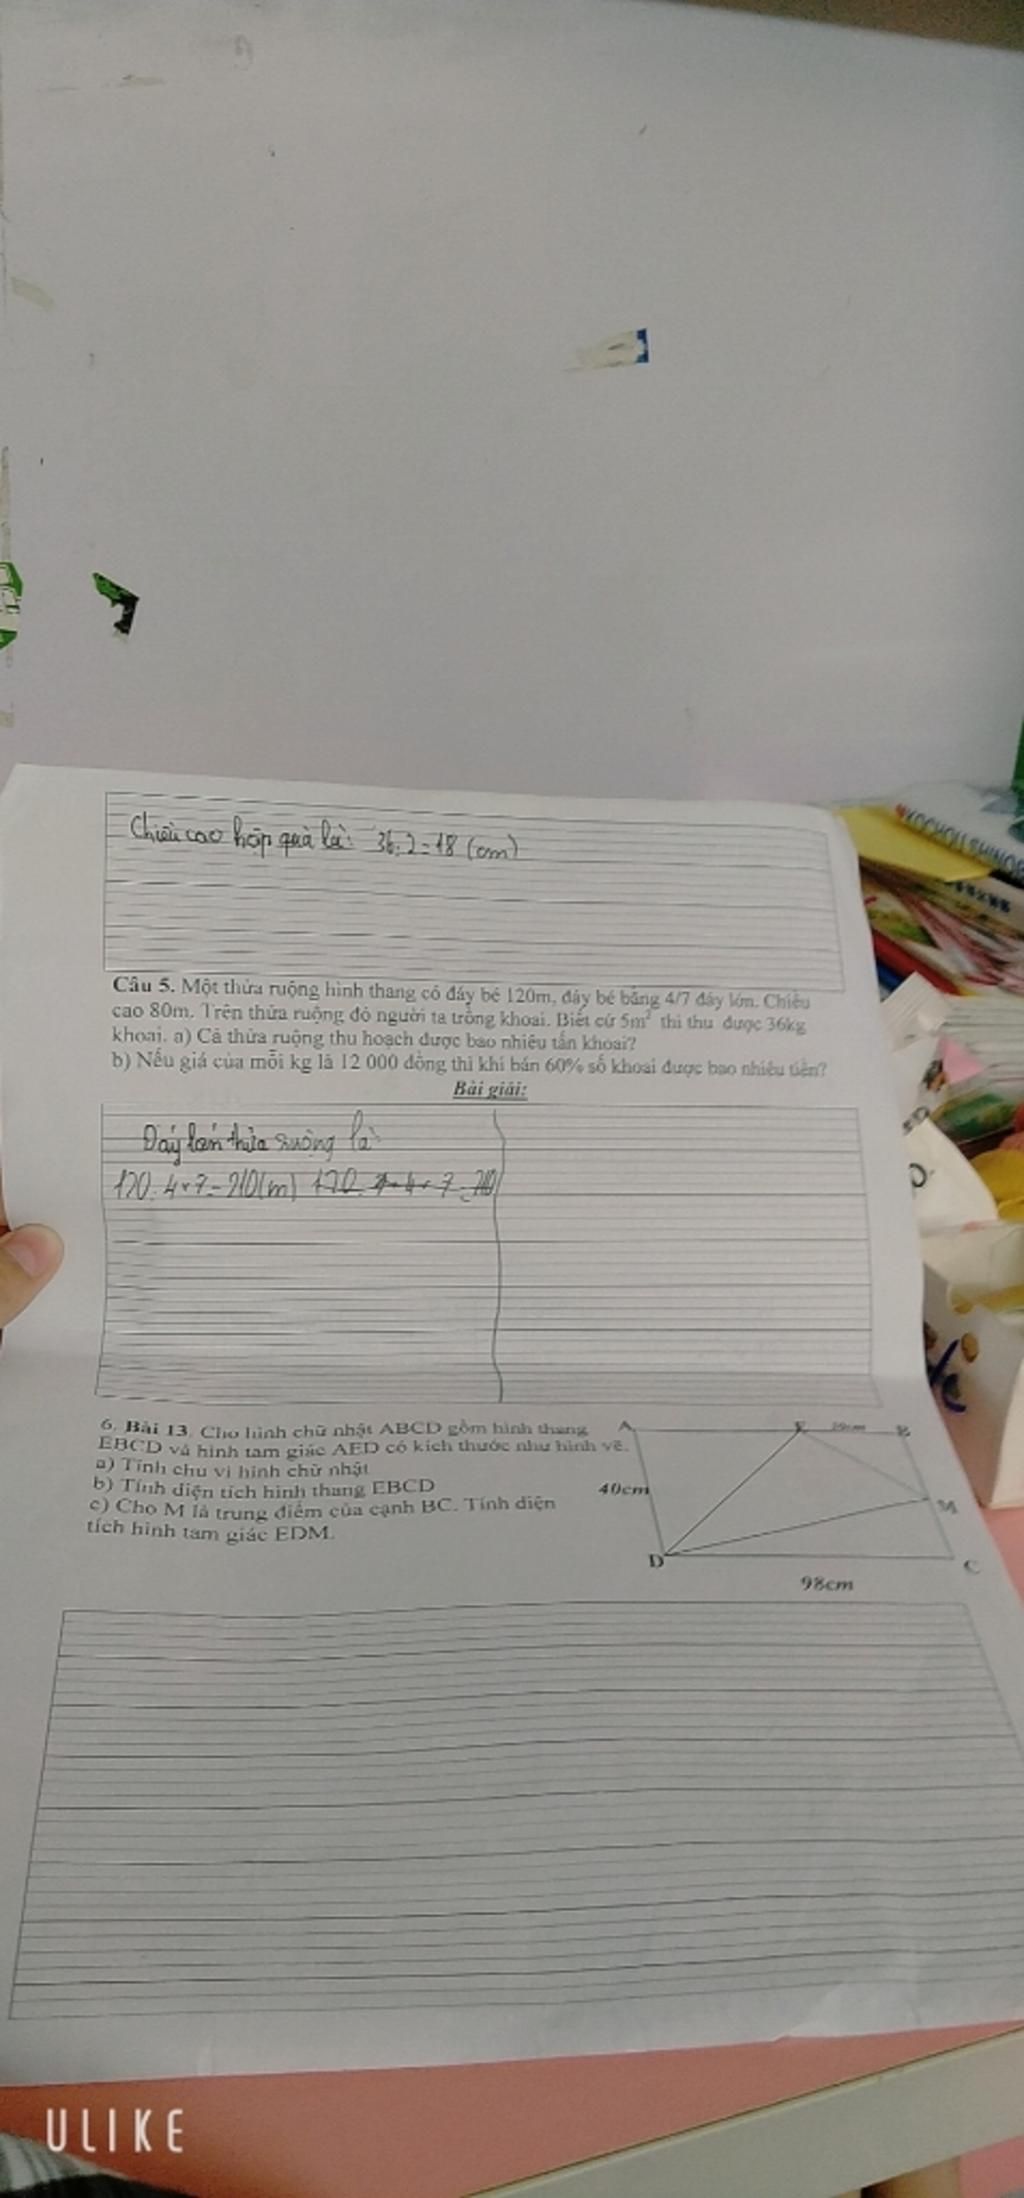 Chiều cao hộp quà là: 36:2=18 (cm)
Câu 5. Một thửa ruộng hình thang có đáy bé 120m, đáy bé bằng 4/7 đáy lớn. Chiều
cao 80m. Trên thửa ruộng đó người ta trồng khoai. Biết cứ 5m² thì thu được 36kg
khoai. a) Cả thửa ruộng thu hoạch được bao nhiêu tấn khoai?
b) Nếu giá của mỗi kg là 12 000 đồng thì khi bán 60% số khoai được bao nhiêu tiền?
Bài giải:
Đáy lớn thửa ruộng là:
120:4×7=210(m)
6. Bài 13. Cho hình chữ nhật ABCD gồm hình thang
EBCD và hình tam giác AED có kích thước như hình vẽ.
a) Tính chu vi hình chữ nhật
b) Tính diện tích hình thang EBCD
c) Cho M là trung điểm của cạnh BC. Tính diện
tích hình tam giác EDM.
A E B
40cm
M
D C
98cm
ULIKE